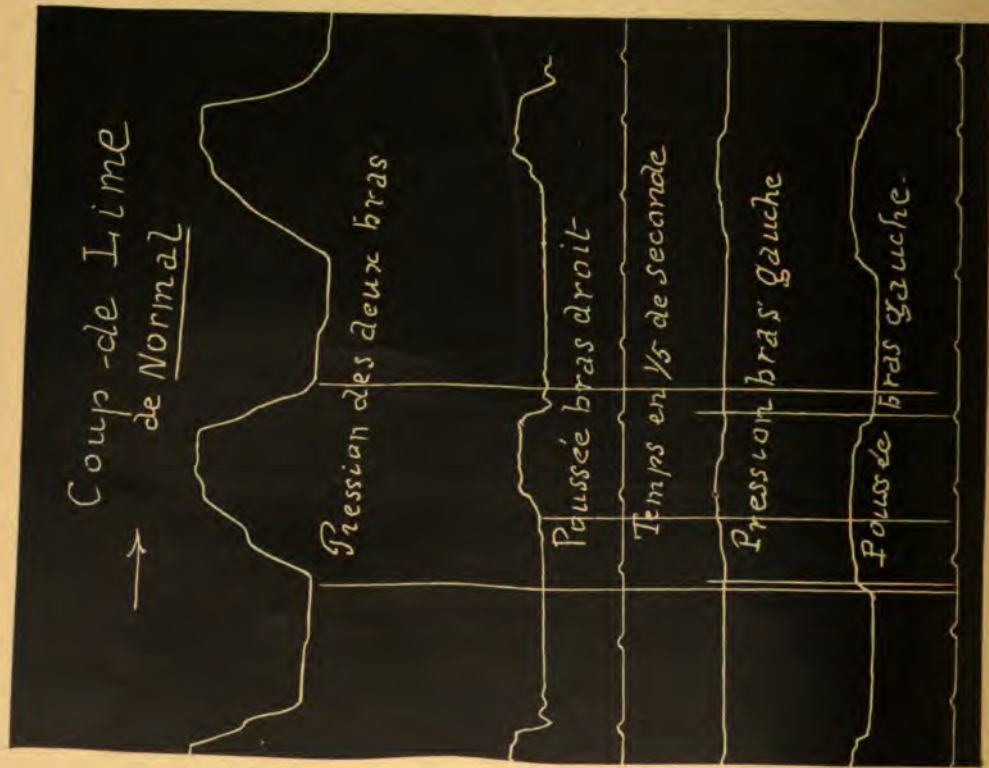 Coup de Lime
de Normal
Pression des deux bras
Poussée bras droit
Temps en 1/5 de seconde
Pression bras gauche
Poussée bras gauche.